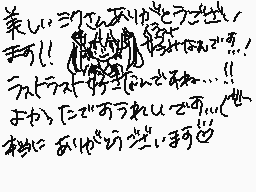 美しいミクさんありがとうござい
ます!! ミクさん好みなんです…!
ラストラスト好きなんですね…!!
よかったですうれしいです…
本当に ありがとうございます